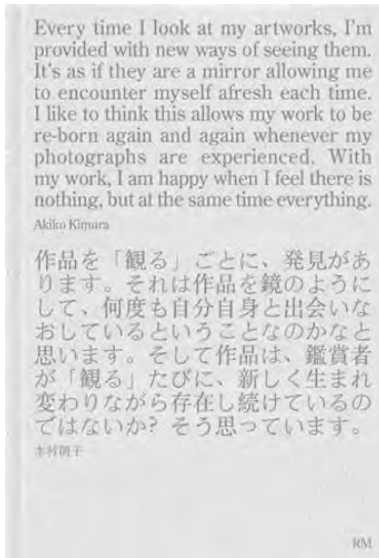 Every time I look at my artworks, I'm
provided with new ways of seeing them.
It's as if they are a mirror allowing me
to encounter myself afresh each time.
I like to think this allows my work to be
re-born again and again whenever my
photographs are experienced. With
my work, I am happy when I feel there is
nothing, but at the same time everything.
Akiko Kimura
作品を「観る」ごとに、発見があ
ります。それは作品を鏡のように
して、何度も自分自身と出会いな
おしているということなのかなと
思います。そして作品は、鑑賞者
が「観る」たびに、新しく生まれ
変わりながら存在し続けているの
ではないか? そう思っています。
木村朗子
RM